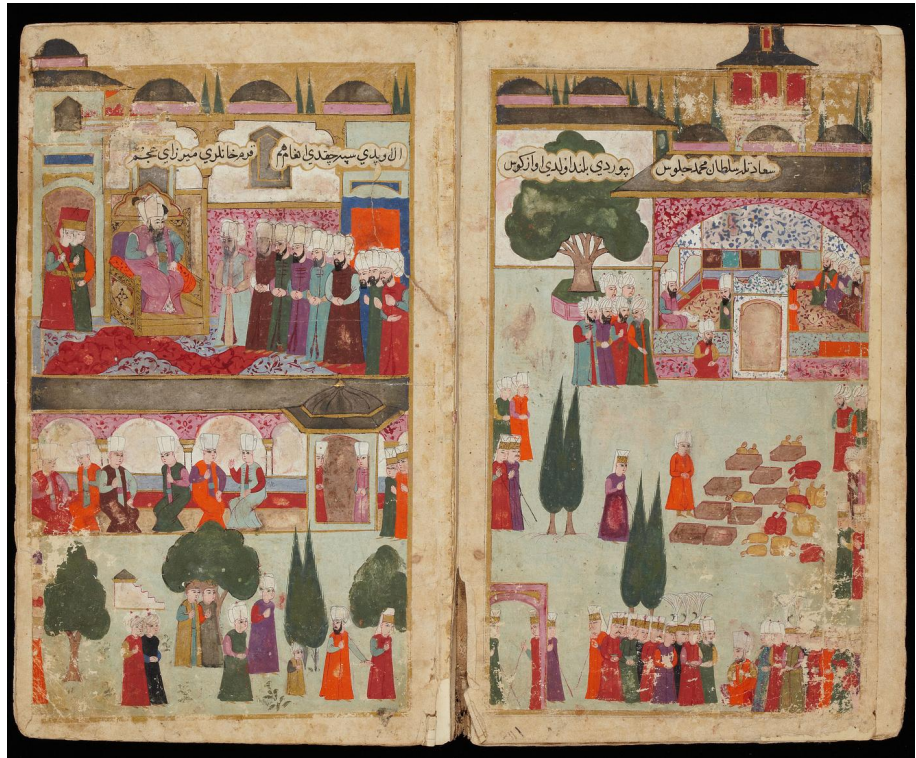 سعادتله سلطان محمد جلوس
بيوردي بلند اولدي اواز كوس
ال اوپدي سپه چقدي انعام هم
قرم خانلري ميرزاي عجم